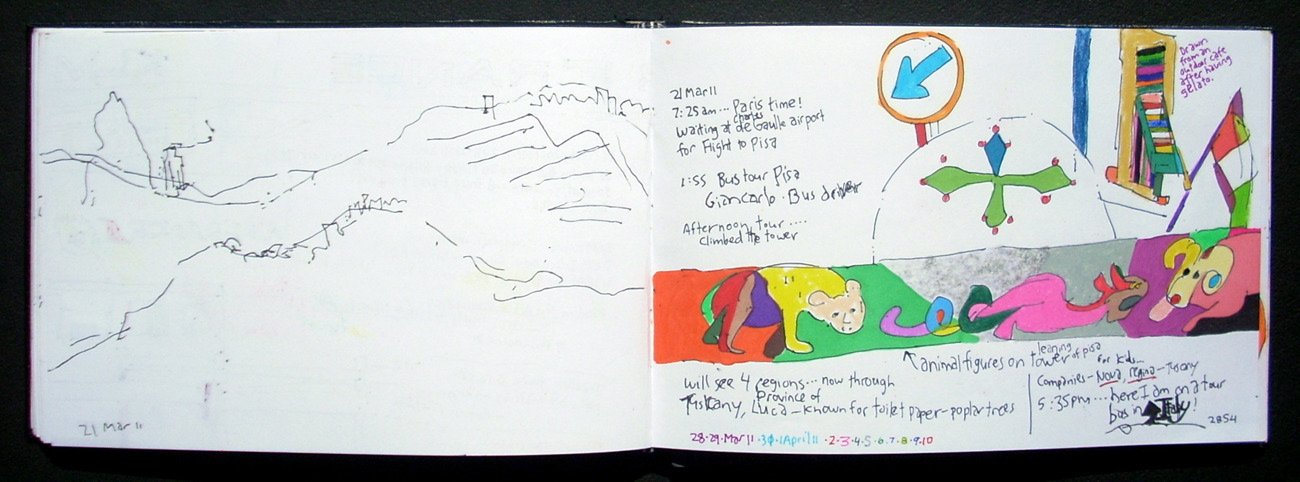 21 Mar 11
21 Mar 11
7:25am... Paris time!
Waiting at charles de Gaulle airport
for Flight to Pisa
1:55 Bus tour Pisa
Giancarlo. Bus driver
Afternoon tour....
Climbed the tower
Drawn
from an
outdoor cafe
after having
gelato.
animal figures on leaning tower of pisa
for kids...
will see 4 regions... now through
Tuskany, Province of Luca - known for toilet paper - poplar trees
Companies - Nova, Regina - Tuscany
5:35pm... here I am on a tour
bus in Italy!
2854
28·29·Mar 11·30·1April 11·2·3·4·5·6·7·8·9·10